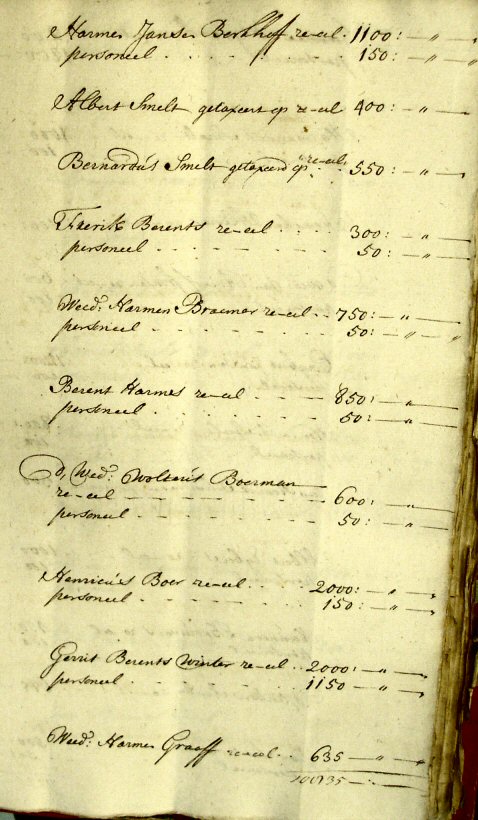 Harmen Jansen Berkhof re-eel. 1100: — " —
personeel . . . . 150: — " —
Albert Smelt getaxeert op re-eel 400: — " —
Bernardus Smelt getaxeerd op re-eel. 550: — " —
Frerik Berents re-eel . . . . 300: — " —
personeel . . . . . 50: — " —
Weed: Harmen Braemer re-eel . . 750: — " —
personeel . . . . . 50: — " — "
Berent Harmes re-eel . . . . 850: — " —
personeel . . . . . 50: — " —
D, Wed: Wolterus Boerman
re-eel — — — — — 600: — " —
personeel . . . . . 50: — " —
Henricus Boer re-eel . . . . 2000: — " —
personeel . . . . . 150: — " —
Gerrit Berents Winter re-eel . . 2000: — " —
personeel . . . . . 1150 — " —
Weed: Harmen Graaff re-eel . . 635 — " —